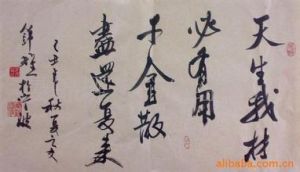 天生我材
必有用
千金散
盡還复来
己丑年秋夏之文
alibaba.com.cn